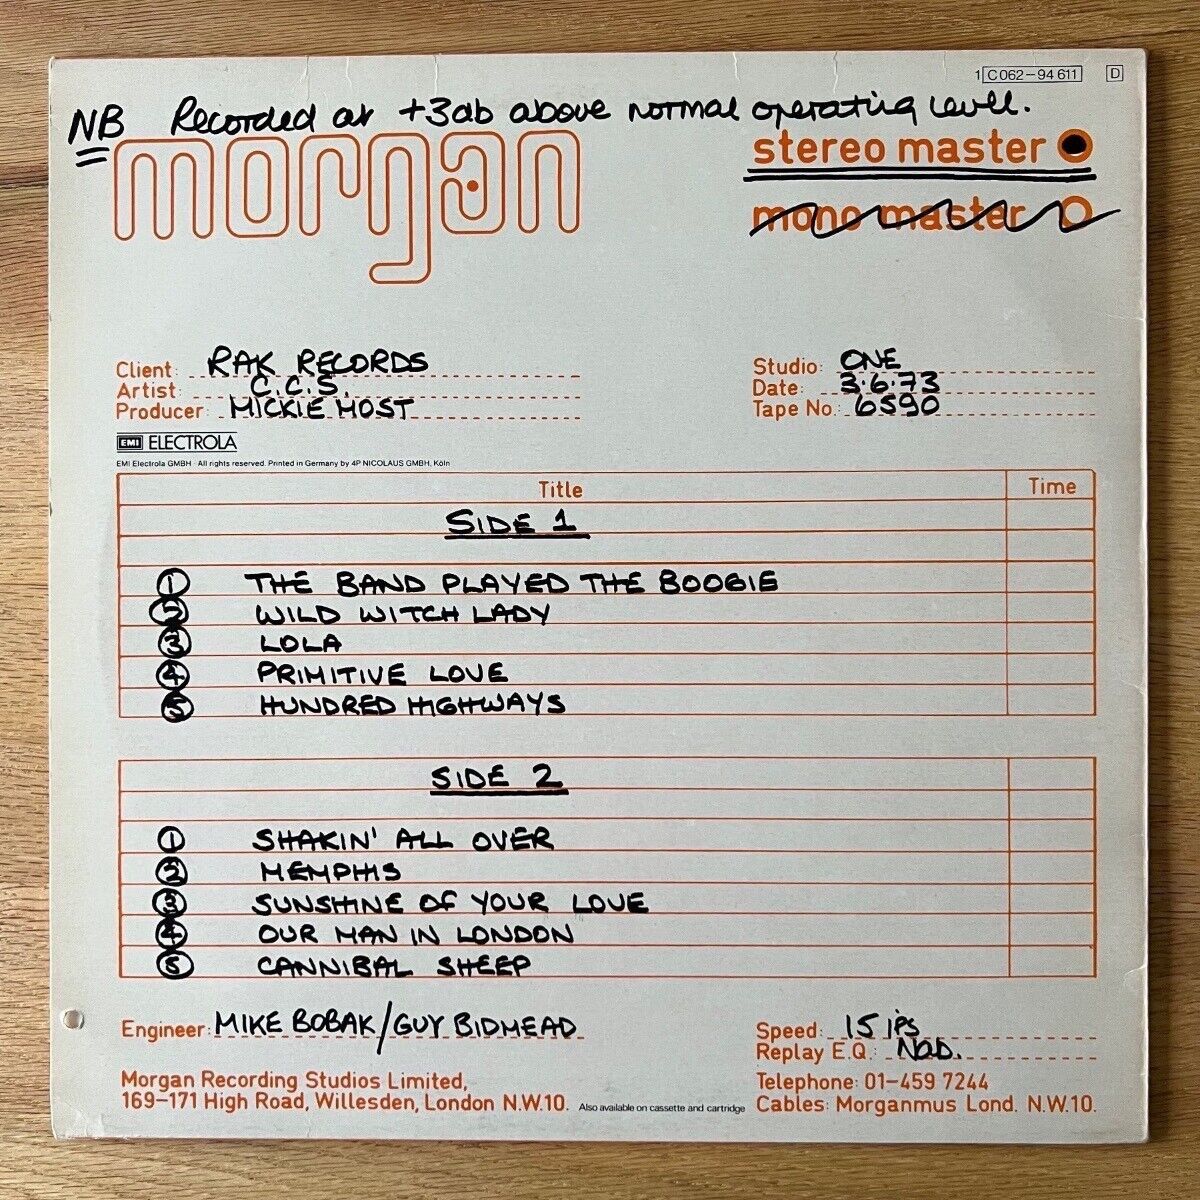 1 C 062-94 611 D
NB Recorded at +3db above normal operating level.
morgan
stereo master
mono master
Client: RAK RECORDS
Artist: C.C.S.
Producer: MICKIE MOST
Studio: ONE
Date: 3.6.73
Tape No.: 6590
EMI ELECTROLA
EMI Electrola GMBH · All rights reserved. Printed in Germany by 4P NICOLAUS GMBH, Köln
Title Time
SIDE 1
1 THE BAND PLAYED THE BOOGIE
2 WILD WITCH LADY
3 LOLA
4 PRIMITIVE LOVE
5 HUNDRED HIGHWAYS
SIDE 2
1 SHAKIN' ALL OVER
2 MEMPHIS
3 SUNSHINE OF YOUR LOVE
4 OUR MAN IN LONDON
5 CANNIBAL SHEEP
Engineer: MIKE BOBAK/GUY BIDMEAD
Speed: 15 ips
Replay E.Q.: NAB.
Morgan Recording Studios Limited,
169-171 High Road, Willesden, London N.W.10.
Also available on cassette and cartridge
Telephone: 01-459 7244
Cables: Morganmus Lond. N.W.10.